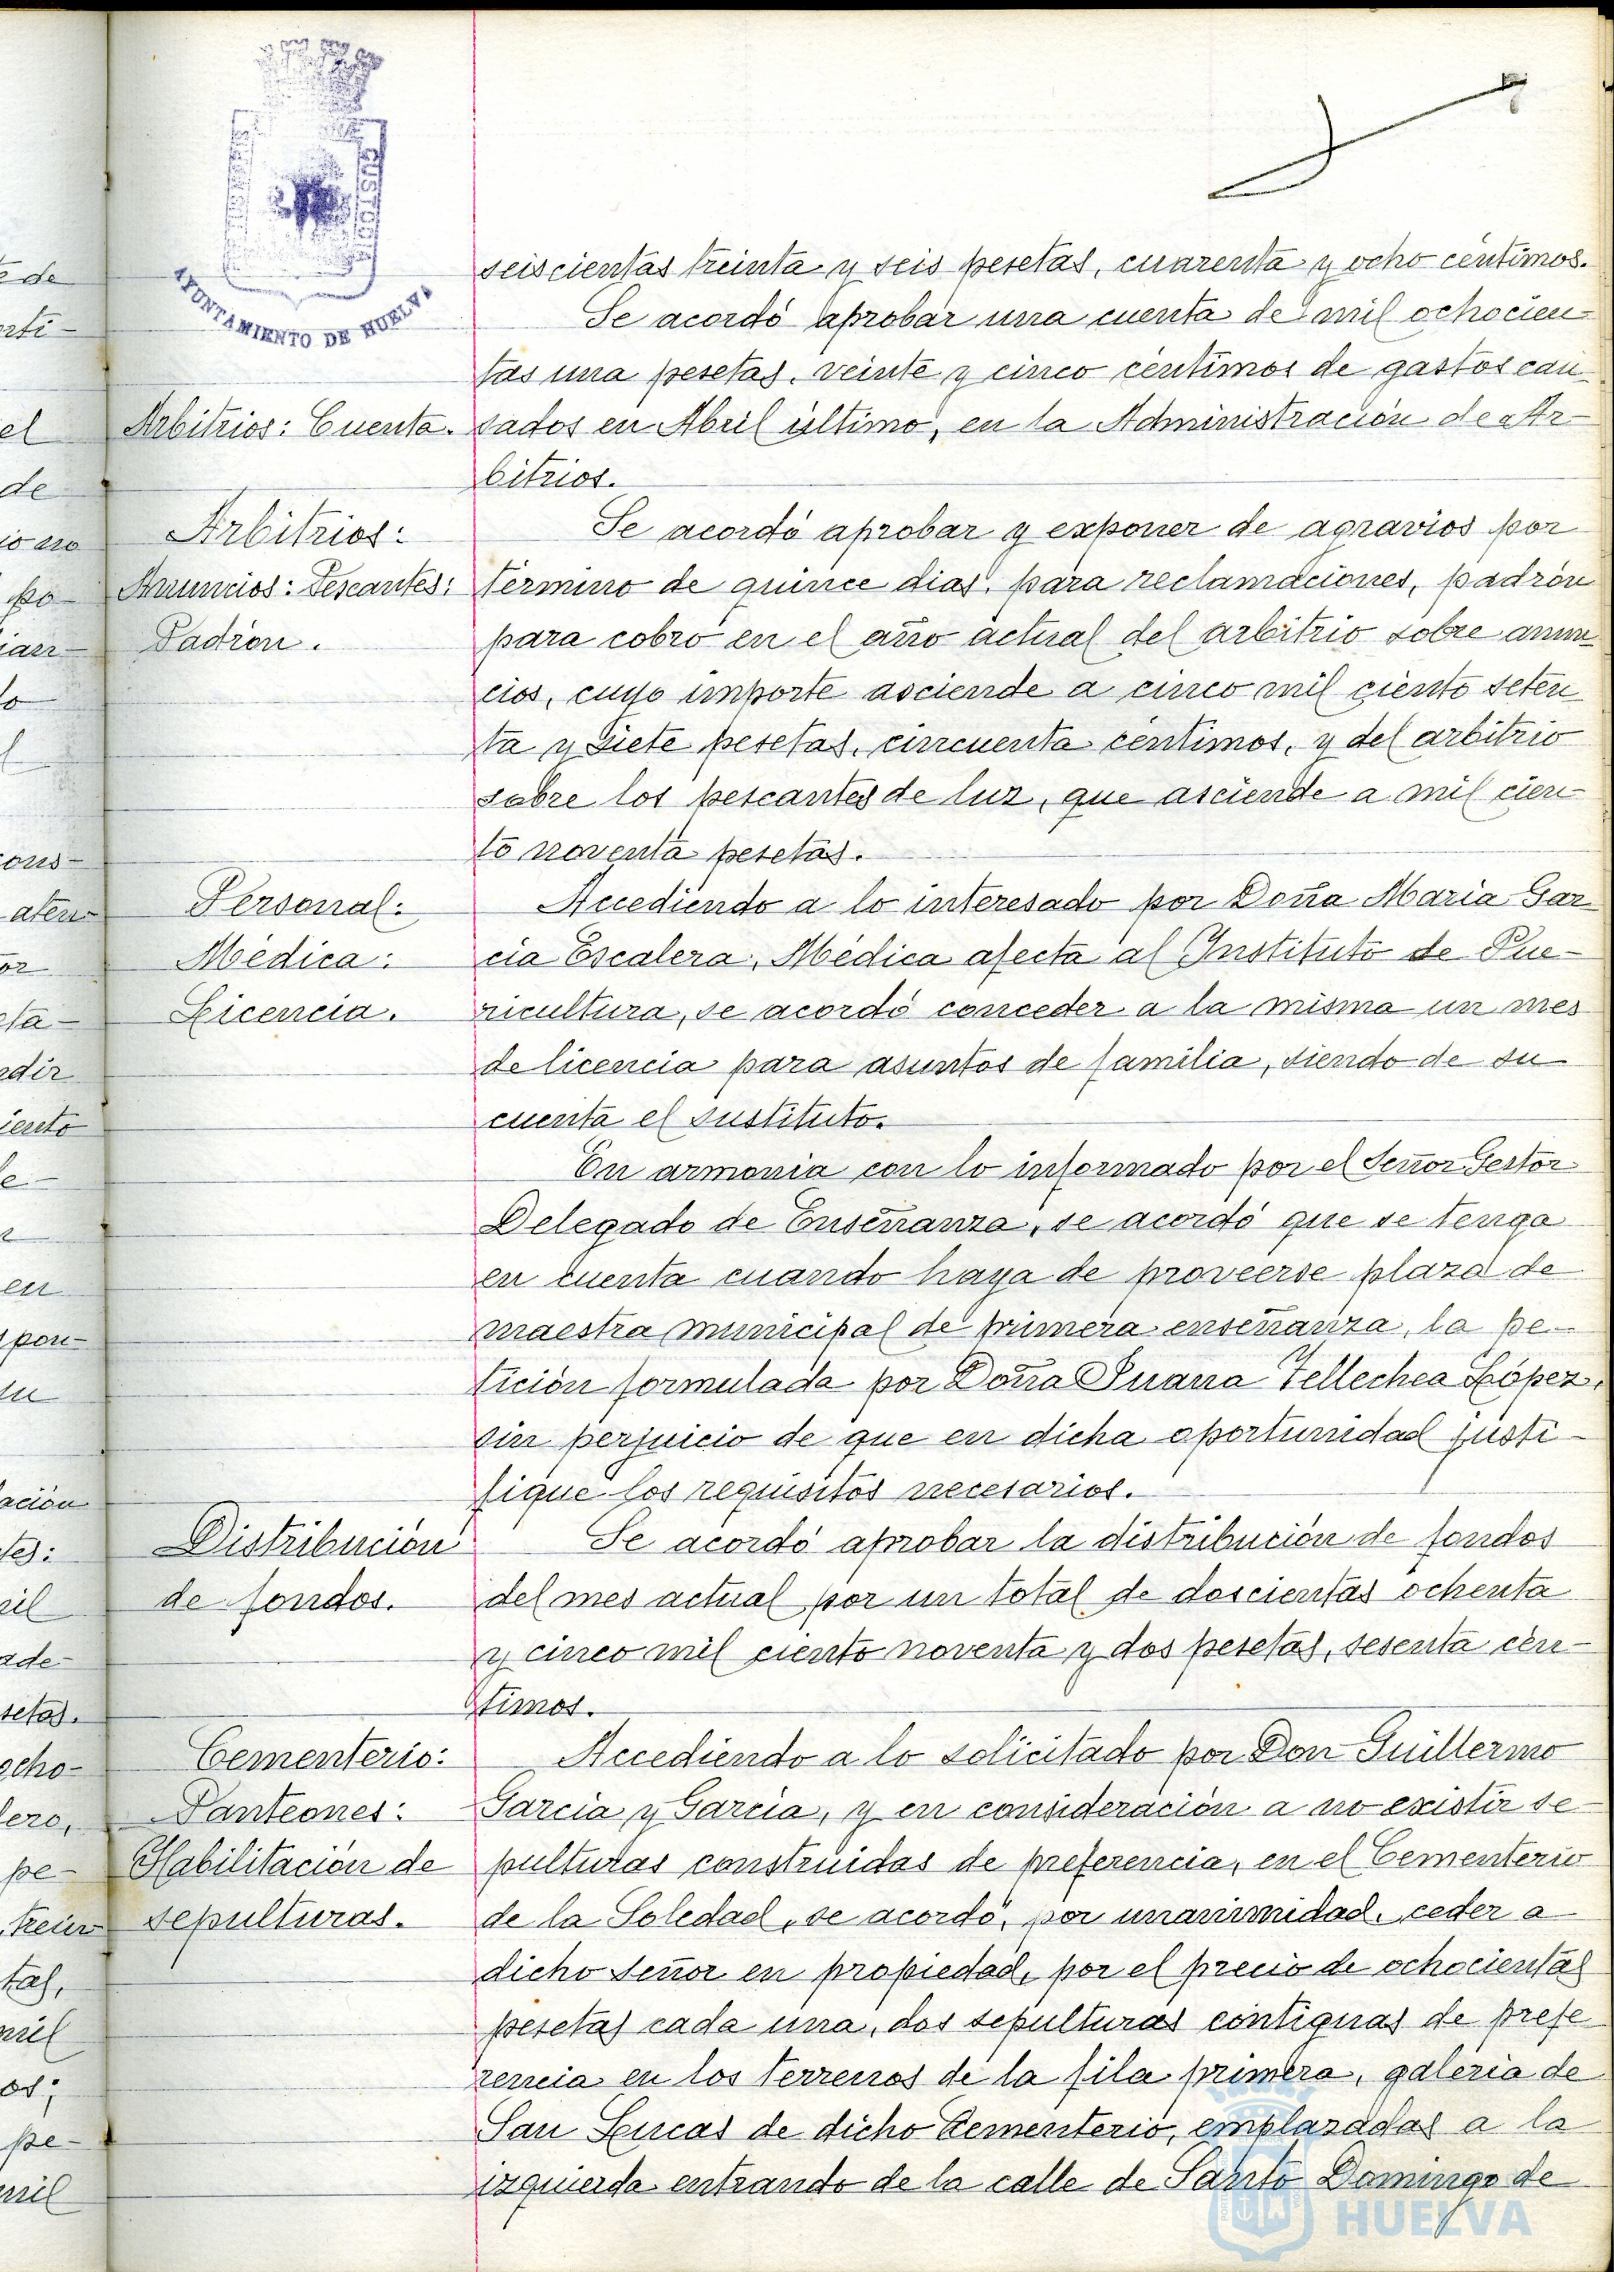 CUSTODIA
AYUNTAMIENTO DE HUELVA
seiscientas treinta y seis pesetas, cuarenta y ocho céntimos.
Se acordó aprobar una cuenta de mil ochocien-
tas una pesetas, veinte y cinco céntimos de gastos cau-
Arbitrios: Cuenta. sados en Abril último, en la Administración de Ar-
bitrios.
Arbitrios: Se acordó aprobar y exponer de agravios por
Anuncios: Pescantes: término de quince dias, para reclamaciones, padrón
Padrón. para cobro en el año actual del arbitrio sobre anun-
cios, cuyo importe asciende a cinco mil ciento seten
ta y siete pesetas, cincuenta céntimos, y del arbitrio
sobre los pescantes de luz, que asciende a mil cien-
to noventa pesetas.
Personal: Accediendo a lo interesado por Doña Maria Gar
Médica: cia Escalera, Médica afecta al Instituto de Pue-
Licencia. ricultura, se acordó conceder a la misma un mes
de licencia para asuntos de familia, siendo de su
cuenta el sustituto.
En armonia con lo informado por el Señor Gestor
Delegado de Enseñanza, se acordó que se tenga
en cuenta cuando haya de proveerse plaza de
maestra municipal de primera enseñanza, la pe-
tición formulada por Doña Juana Tellechea López,
sin perjuicio de que en dicha oportunidad justi-
fique los requisitos necesarios.
Distribución Se acordó aprobar la distribución de fondos
de fondos. del mes actual por un total de doscientas ochenta
y cinco mil ciento noventa y dos pesetas, sesenta cén-
timos.
Cementerio: Accediendo a lo solicitado por Don Guillermo
Panteones: Garcia y Garcia, y en consideración a no existir se-
Habilitación de pulturas construidas de preferencia, en el Cementerio
sepulturas. de la Soledad, se acordó, por unanimidad, ceder a
dicho señor en propiedad, por el precio de ochocientas
pesetas cada una, dos sepulturas contiguas de prefe
rencia en los terrenos de la fila primera, galeria de
San Lucas de dicho Cementerio, emplazadas a la
izquierda entrando de la calle de Santo Domingo de
HUELVA